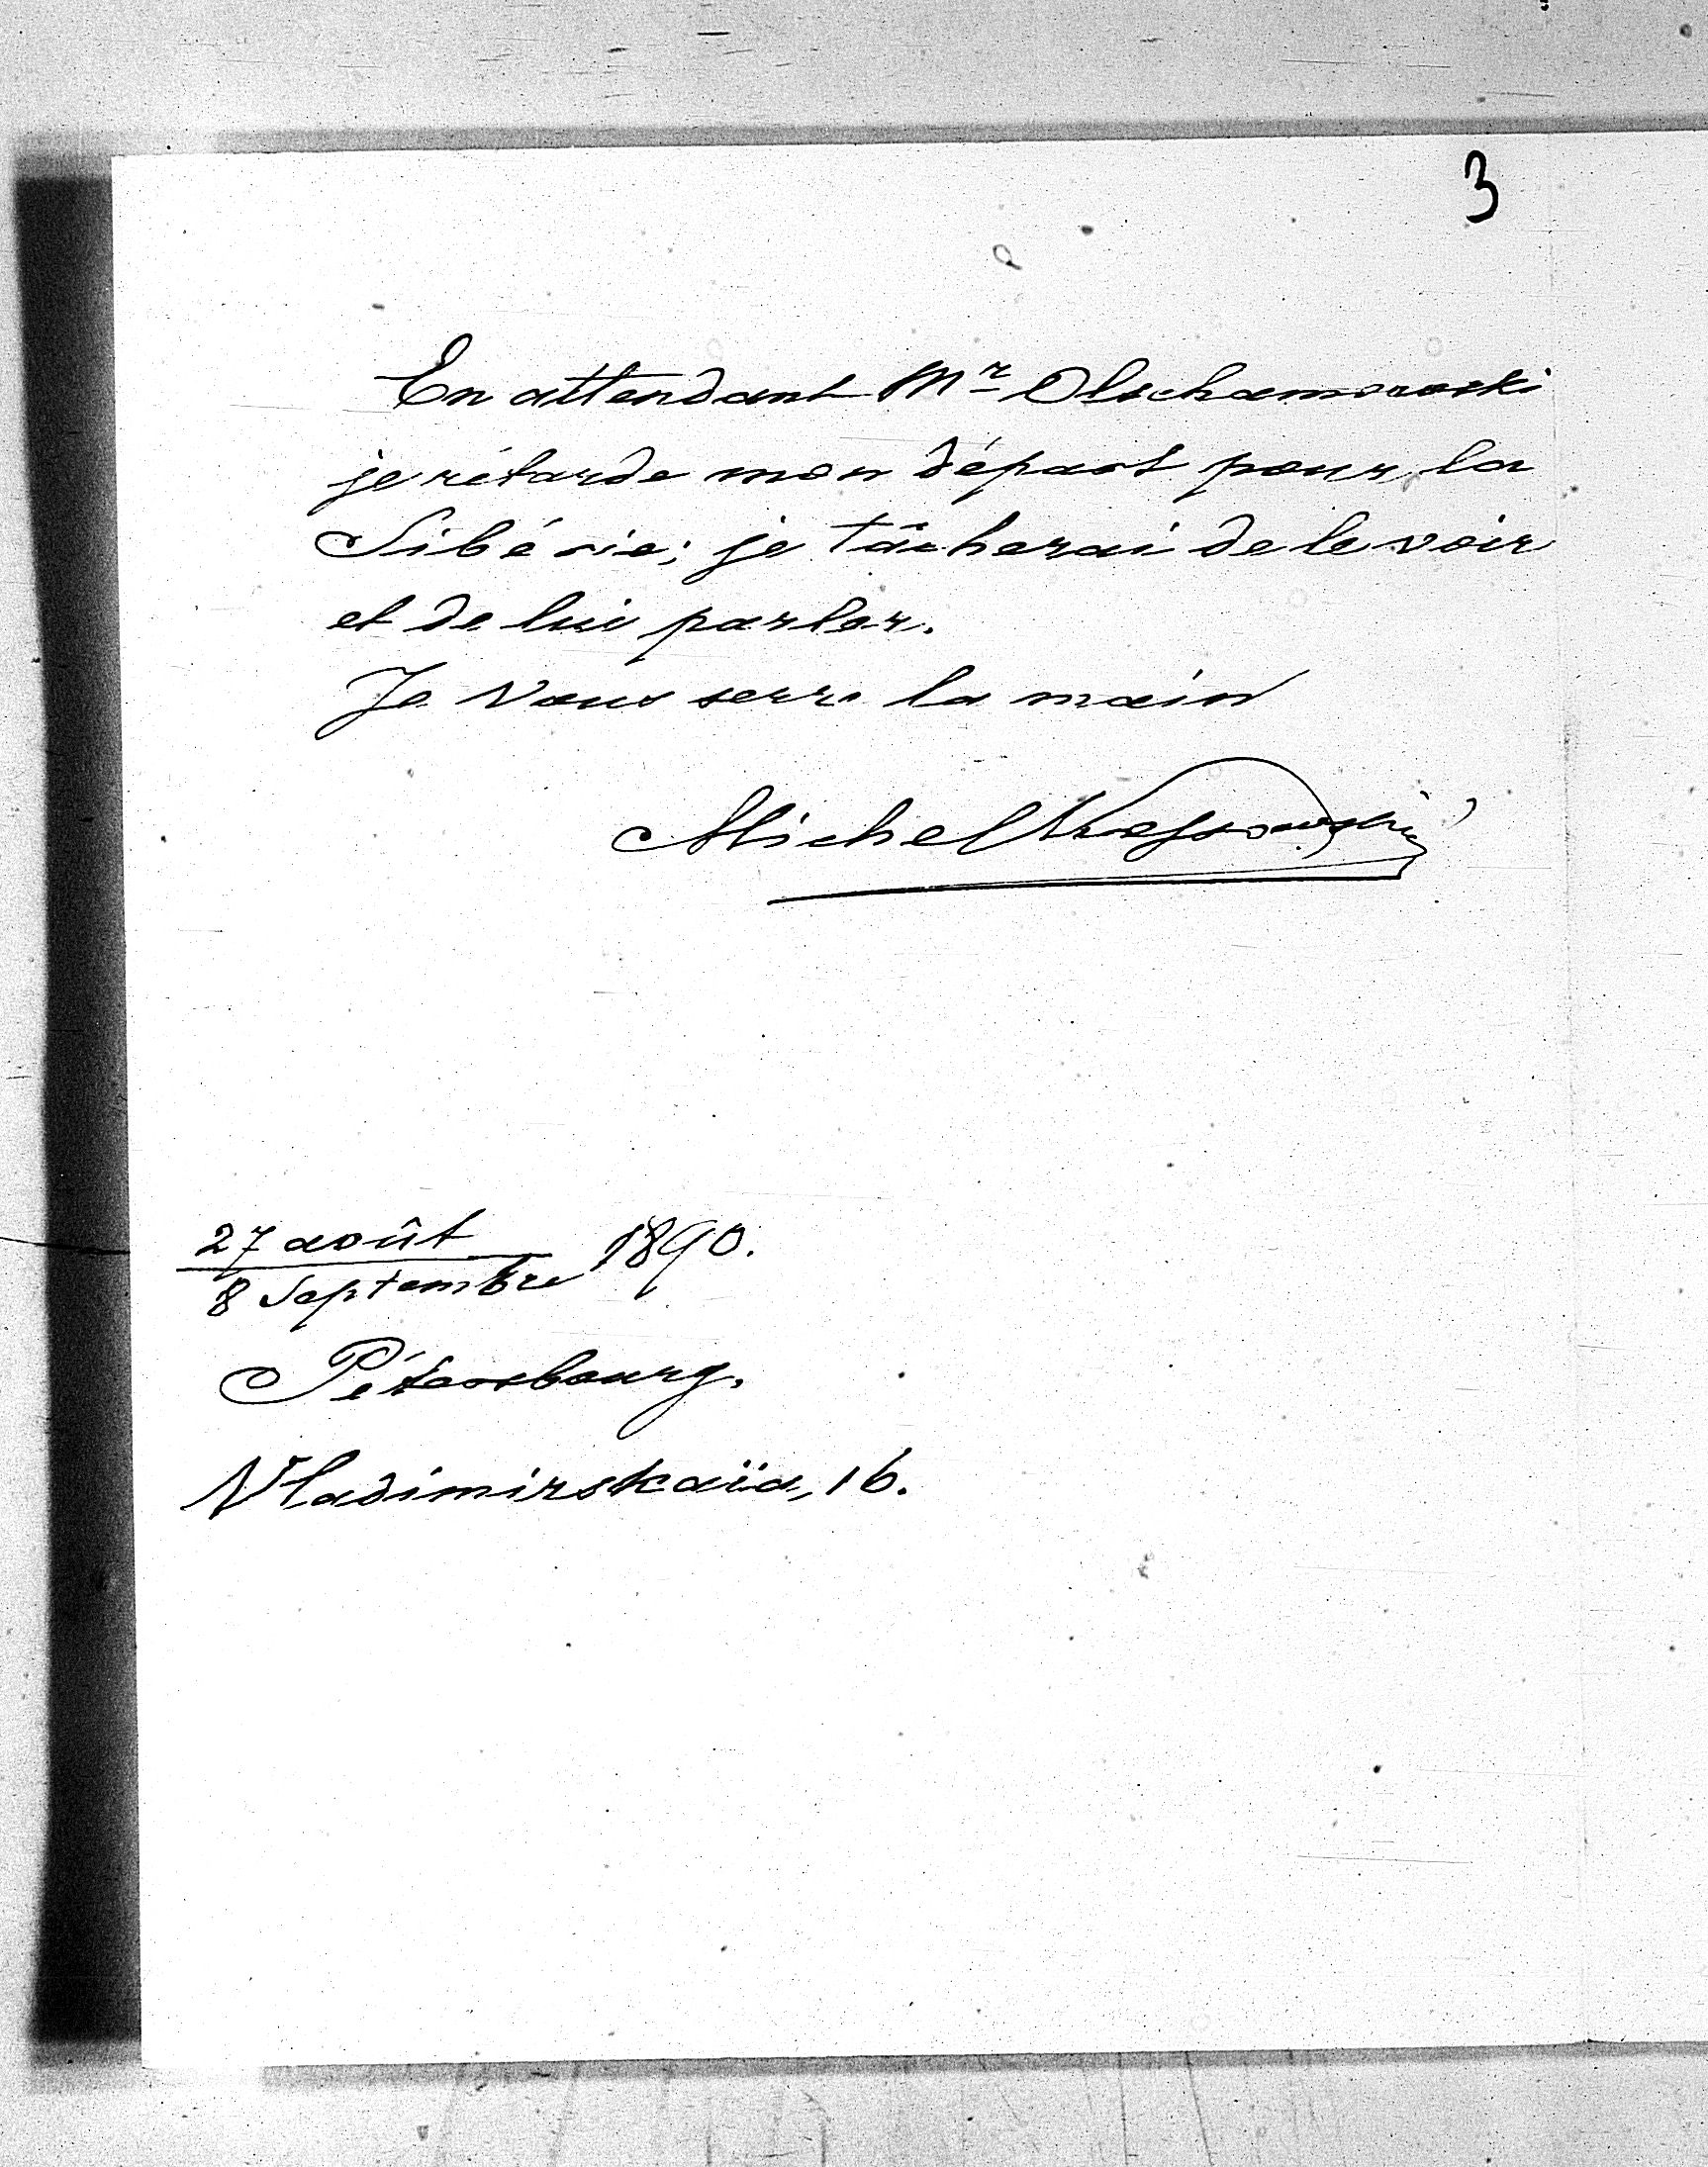 3
En attendant Mr Olschamowski
je rétarde mon départ pour la
Sibérie; je tâcherai de le voir
et de lui parler.
Je vous serre la main
Michel
27 août
8 Septembre 1890.
Pétersbourg.
Vladimirskaïa, 16.